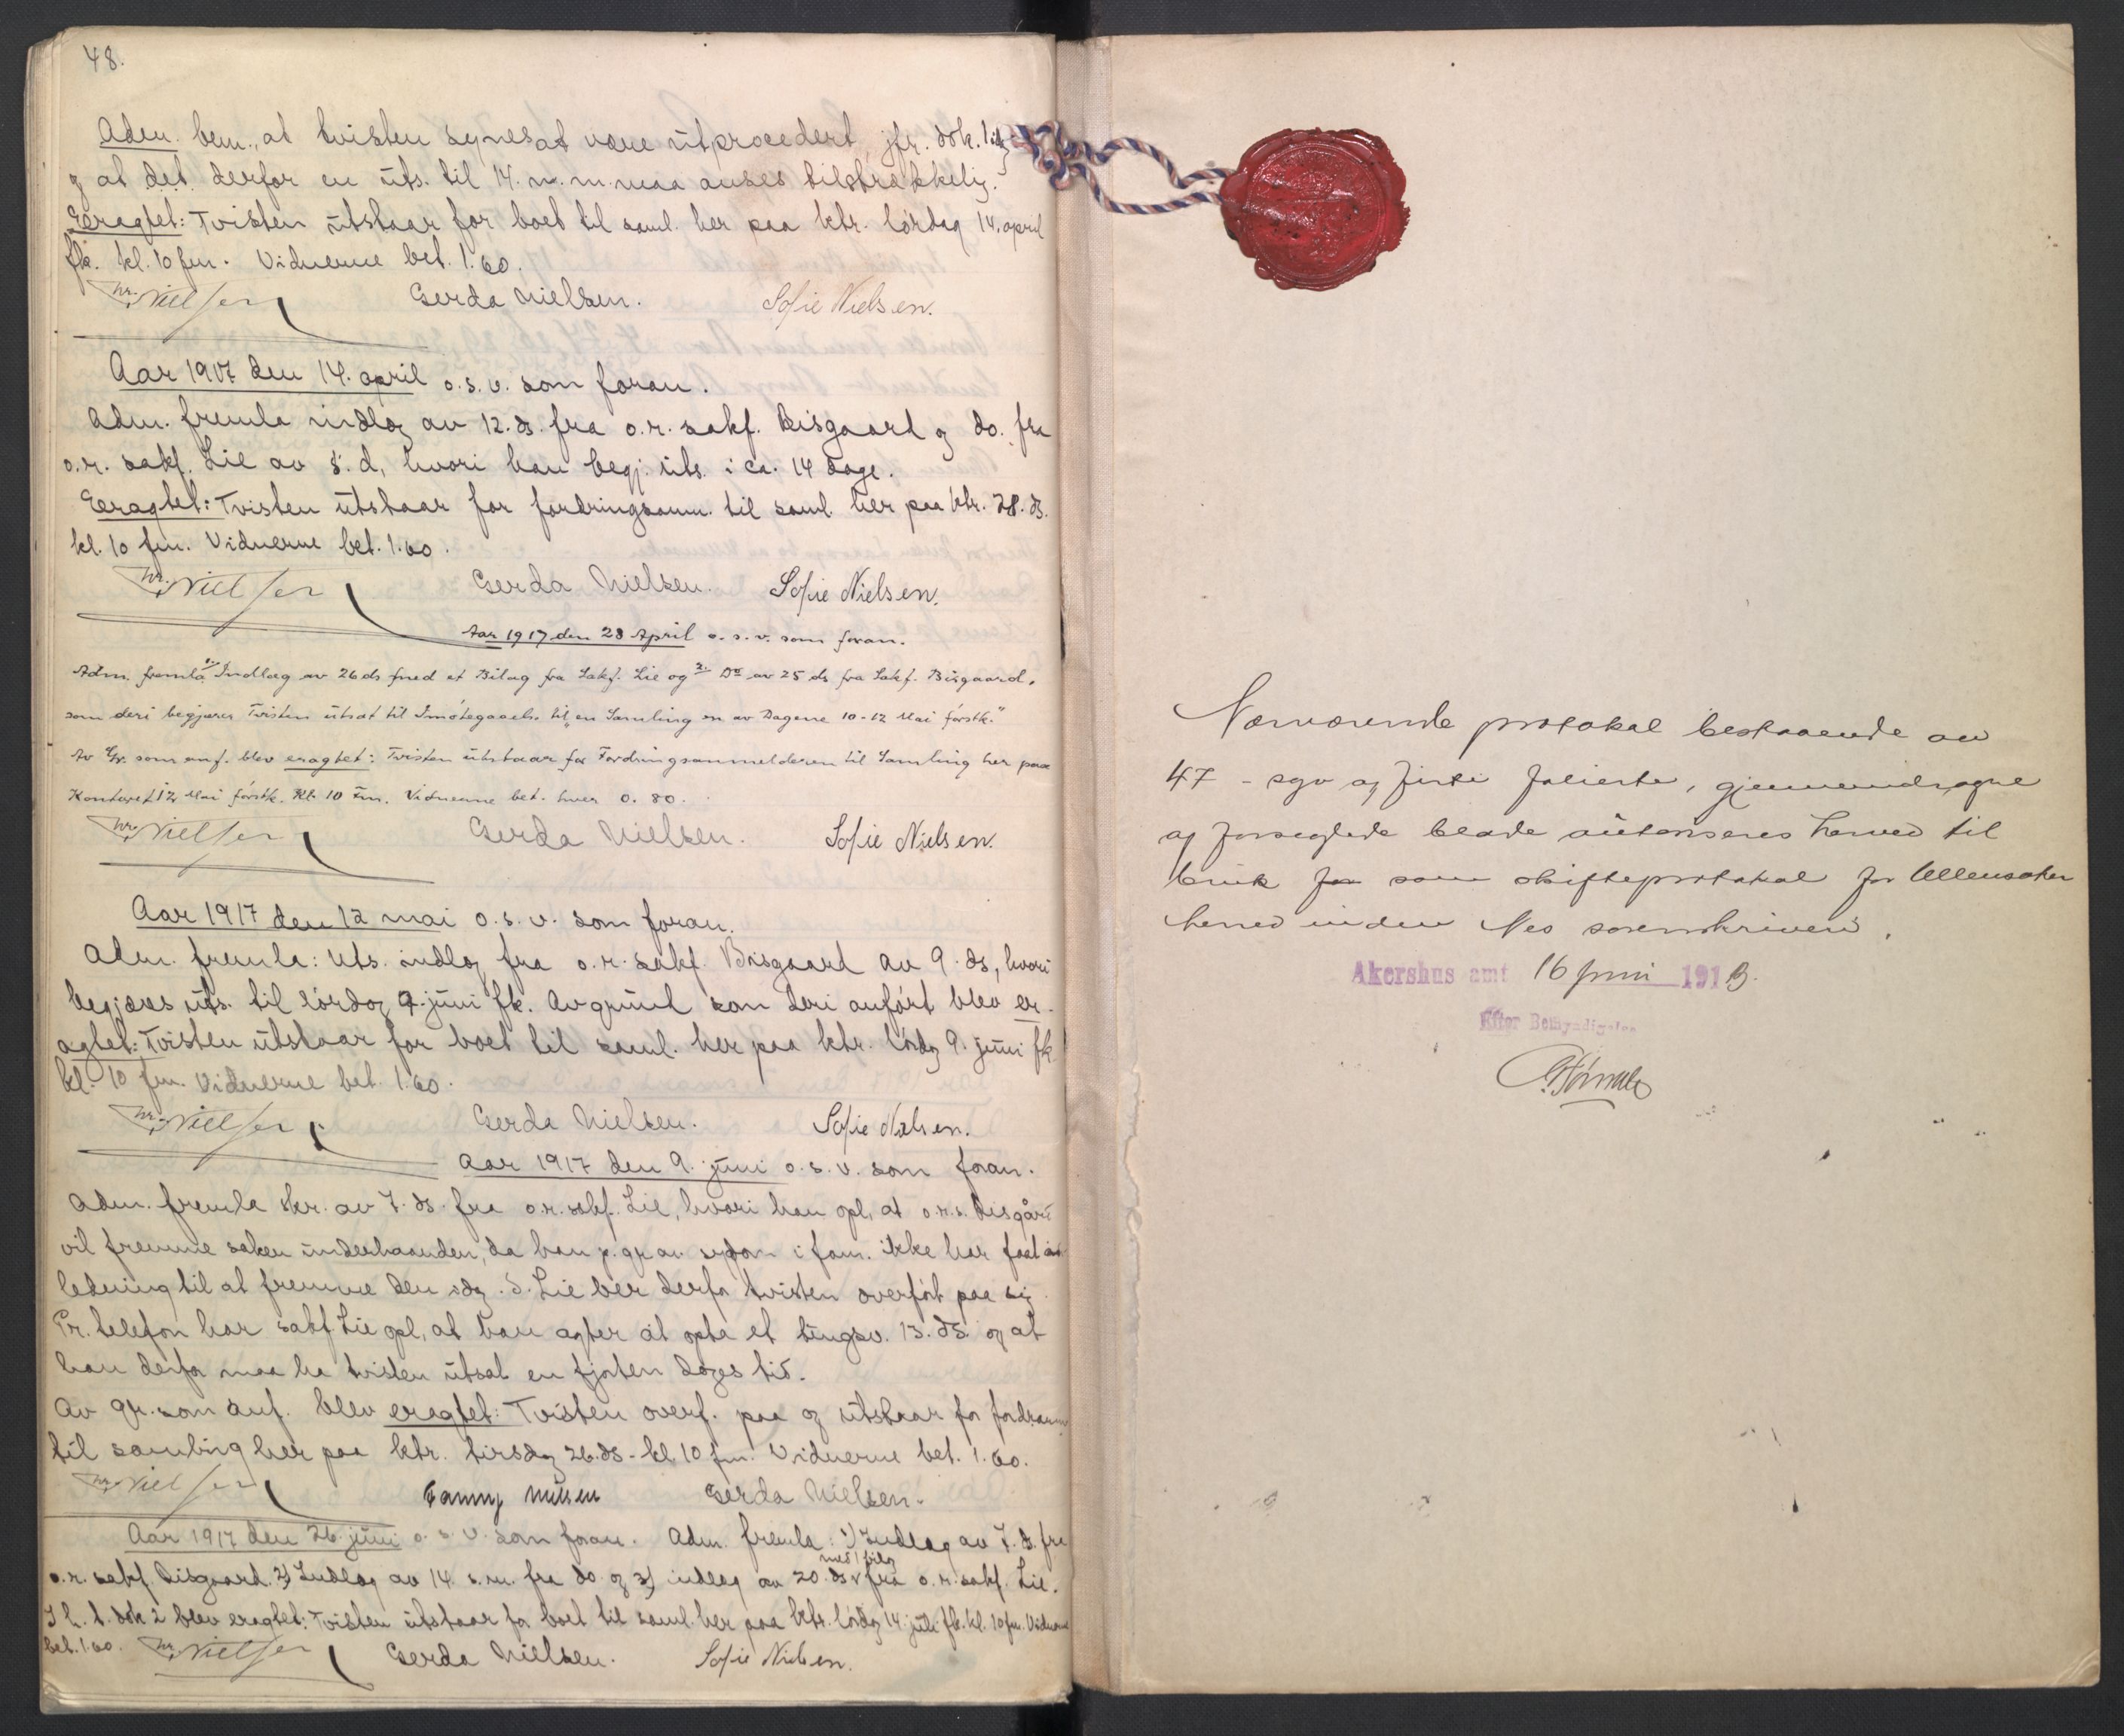 48.
Adm. bem., at tvisten synes at være utprocedert, jfr. dok. 1
og at det derfor en uts. til 14. n. m. maa anses tilstrækkelig.
Eragtet: Tvisten utstaar for boet til saml. her paa ktr. lørdag 14. april
fk. kl. 10 fm. Vidnerne bet. 1.60.
Nielsen Gerda Nielsen. Sofie Nielsen.
Aar 1917 den 14. april o. s. v. som foran.
Adm. fremla indlæg av 12. ds. fra o. r. sakf. Bisgaard og do. fra
o. r. sakf. Lie av s. d., hvori han begj. uts. i ca. 14 dage.
Eragtet: Tvisten utstaar for fordringsanm. til saml. her paa ktr. 28. ds.
kl. 10 fm. Vidnerne bet. 1.60.
Nielsen Gerda Nielsen. Sofie Nielsen.
Aar 1917 den 28 April o. s. v. som foran.
Adm. fremla 1. Indlæg av 26 ds med et Bilag fra Sakf. Lie og 2. Do av 25 ds fra Sakf. Bisgaard,
som deri begjærer Tvisten utsat til Imøtegaaelse til "en Samling en av Dagene 10-12 Mai førstk."
Av Gr. som anf. blev eragtet: Tvisten utstaar for Fordringsanmelderen til Samling her paa
Kontoret 12 Mai førstk. Kl. 10 Fm. Vidnerne bet. hver 0. 80.
Nielsen Gerda Nielsen. Sofie Nielsen.
Aar 1917 den 12 mai o. s. v. som foran.
Adm. fremla: Uts. indlæg fra o. r. sakf. Bisgaard av 9. ds, hvori
begjæres uts. til lørdag 9. juni fk. Av grund som deri anført blev er-
agtet: Tvisten utstaar for boet til saml. her paa ktr. lørdag 9. juni fk
kl. 10 fm. Vidnerne bet. 1.60.
Nielsen Gerda Nielsen. Sofie Nielsen.
Aar 1917 den 9. juni o. s. v. som foran.
Adm. fremla skr. av 7. ds. fra o. r. sakf. Lie, hvori han opl. at o. r. s. Bisgård
vil fremme saken underhaanden, da han p. gr. av sygdom i fam. ikke har faat an
ledning til at fremme den idag. S. Lie ber derfor tvisten overført paa sig.
Pr. telefon har sakf Lie opl., at han agter at opta et tingsv. 13. ds. og at
han derfor maa ha tvisten utsat en fjorten dages tid.
Av gr. som anf. blev eragtet: Tvisten overf. paa og utstaar for fordr.anm
til samling her paa ktr. tirsdag 26. ds. kl. 10 fm. Vidnerne bet. 1.60.
Nielsen Fanny Nielsen Gerda Nielsen.
Aar 1917 den 26. juni o. s. v. som foran. Adm. fremla: 1) Indlæg av 7. ds. fra
o. r. sakf. Bisgaard. 2) Indlæg av 14. s. m. fra do og 3) indlæg av 20. ds med 1 bilag fra o. r. sakf. Lie.
I h. t. dok 2 blev eragtet: Tvisten utstaar for boet til saml. her paa ktr. lørdag 14. juli fk. kl. 10 fm. Vidnerne
bet. 1.60. Nielsen Gerda Nielsen. Sofie Nielsen.
Nærværende protokol bestaaende av
47 - syv og firti folierte, gjennemdragne
og forseglede blade autoriseres herved til
bruk for som skifteprotokol for Ullensaker
herred inden Nes sorenskriveri.
Akershus amt 16 juni 1913.
Efter Bemyndigelse